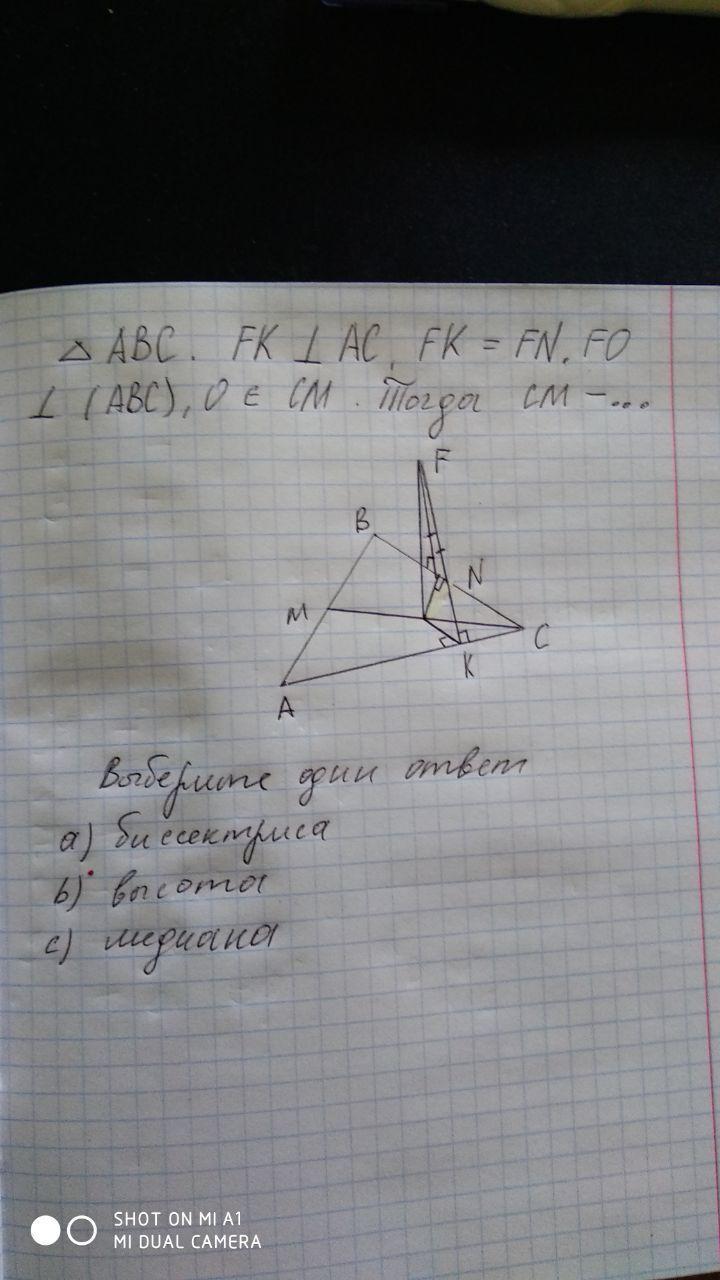 △ ABC. FK ⊥ AC, FK = FN, FO
⊥ (ABC), O ∈ CM. Тогда CM – ...
F
B
N
M
C
K
A
Выберите один ответ
a) биссектриса
b) высота
c) медиана
SHOT ON MI A1
MI DUAL CAMERA